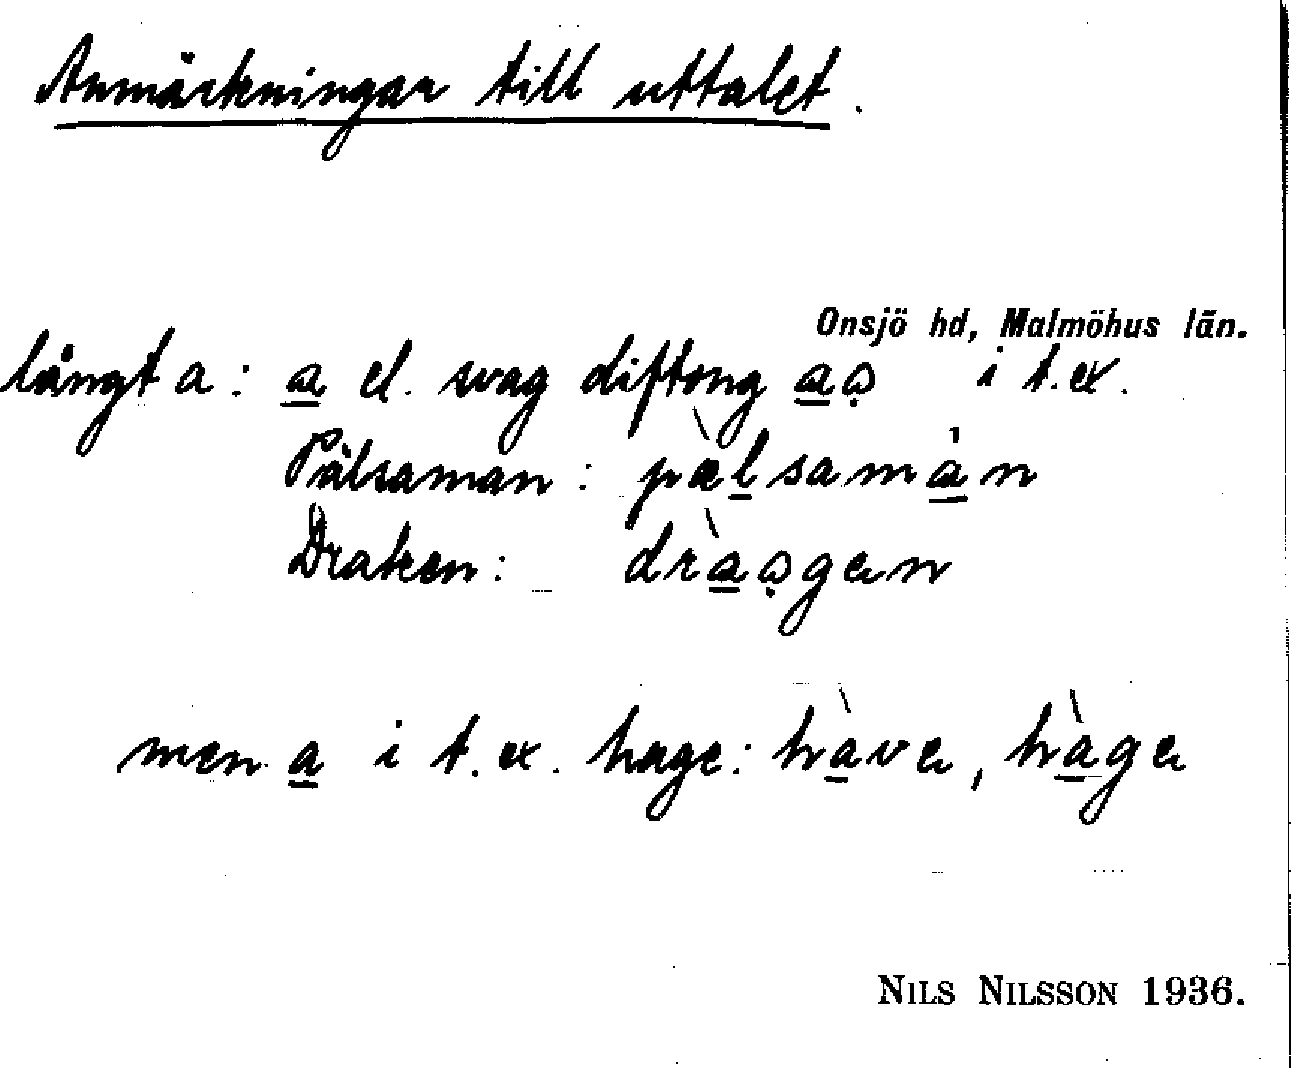 Anmärkningar till uttalet.
Onsjö hd, Malmöhus län.
långt a: a el. svag diftong aọ i t.ex.
Pälsaman: pæ̀lsamán
Draken: dràọgen
men a i t.ex. hage: hàve, hàge
NILS NILSSON 1936.